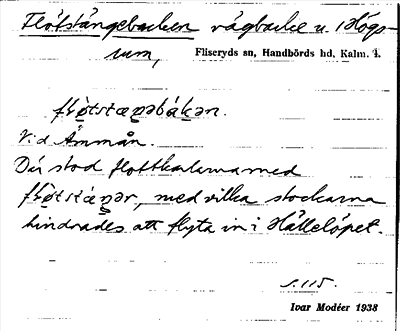 Flötstängebacken vägbacke u. Högs-
rum, Fliseryds sn, Handbörds hd, Kalm. l.
Vid Åmmån.
Där stod flottkarlarna med
med vilka stockarna
hindrades att flyta in i Hälleløpet.
s. 115.
Ivar Modéer 1938